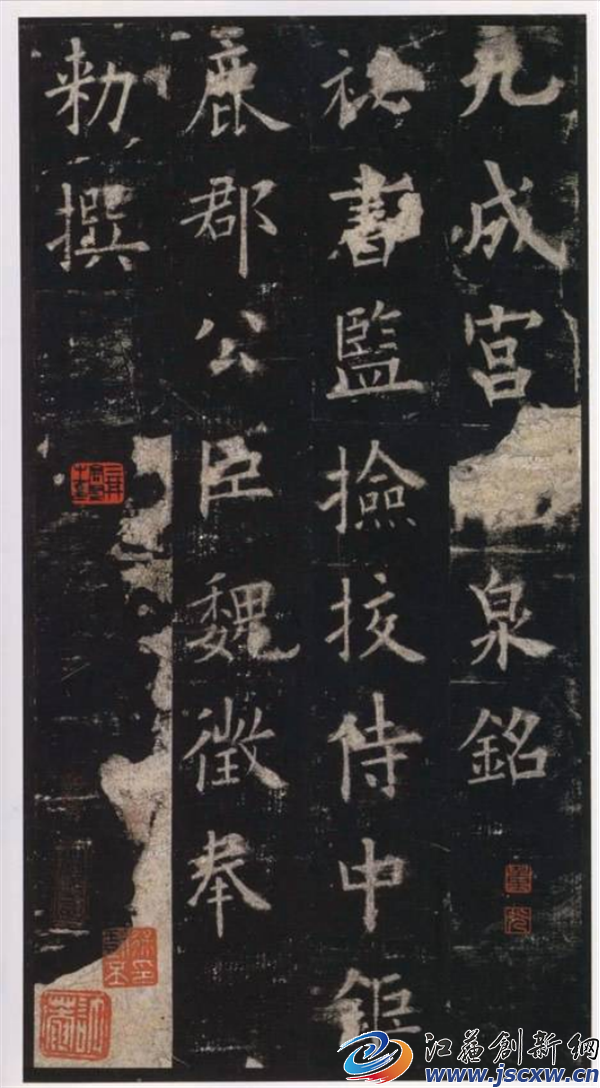 九成宫泉銘
祕書監撿挍侍中鉅
鹿郡公臣魏徵奉
勅撰
江蘇創新網
www.jscxw.cn